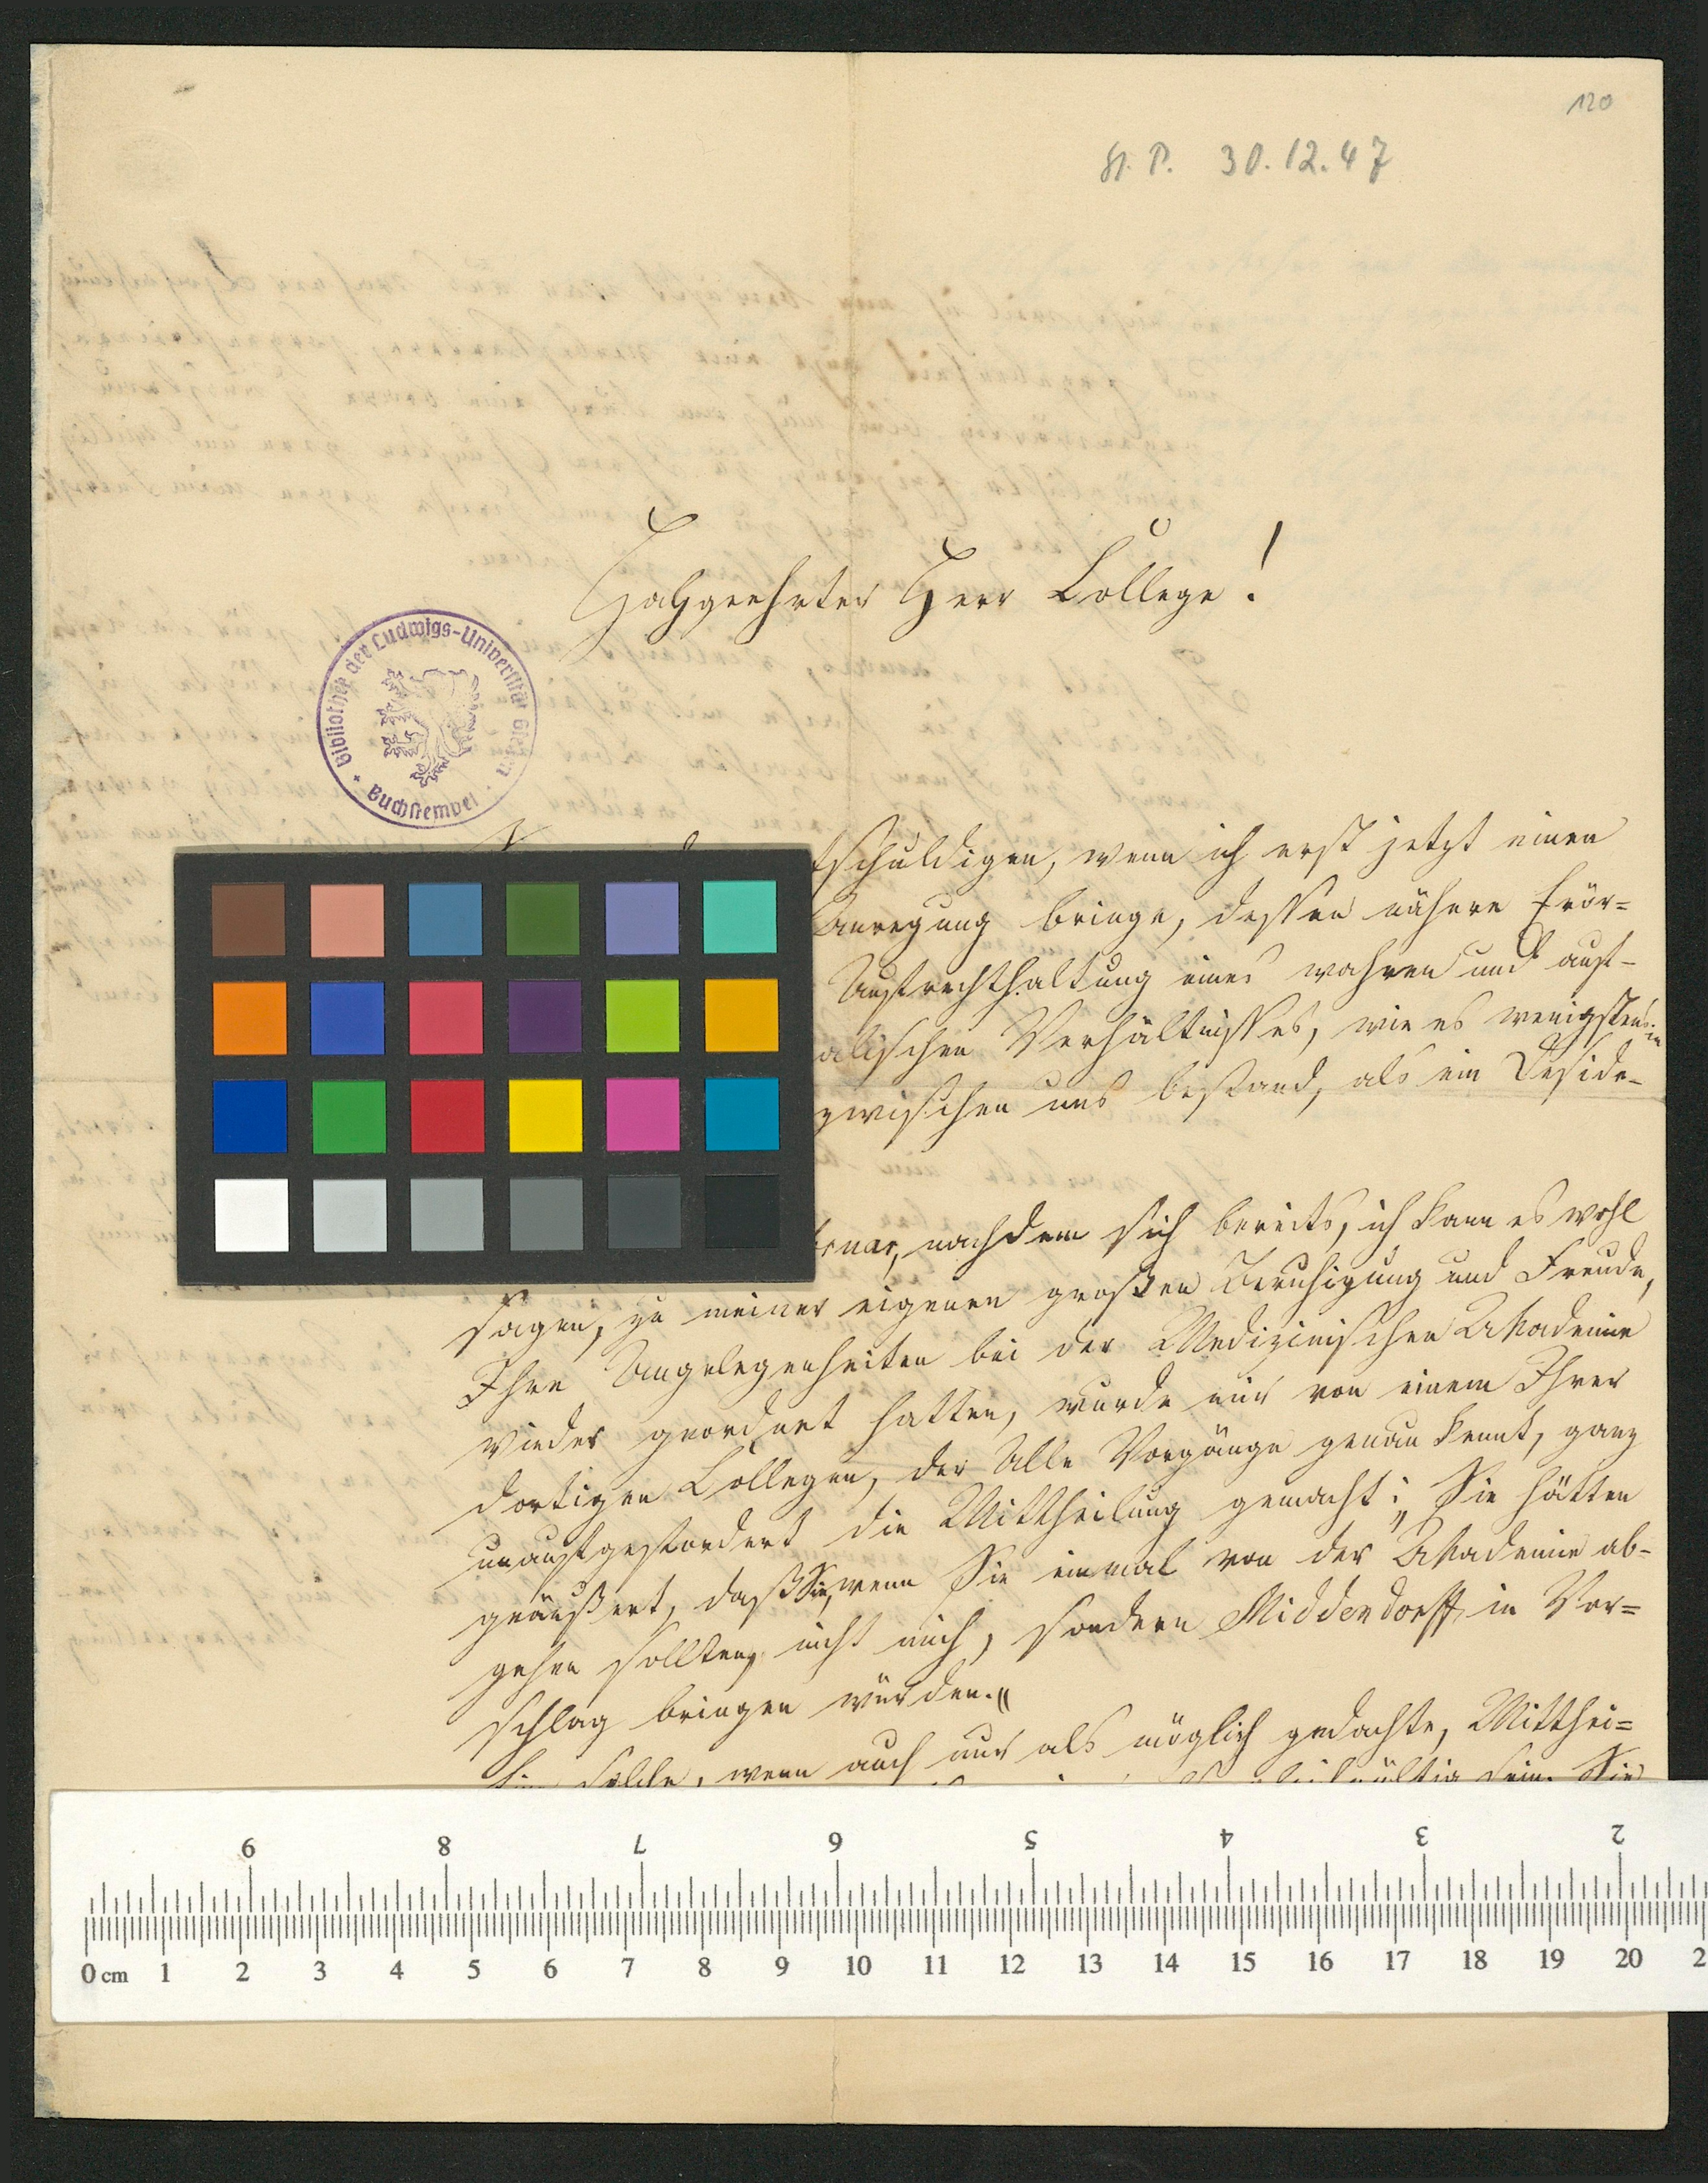 120
St. P. 30.12.47
Hochgeehrter Herr College!
Bibliothek der Ludwigs-Universität Gießen
Buchstempel
tschuldigen, wenn ich erst jetzt einen
Anregung bringe, dessen nähere Erör-
Aufrechthaltung eines wahren und auf-
alischen Verhältnisses, wie es wenigstens in
zwischen uns bestand, als ein Deside-
bruar, nachdem sich bereits, ich kann es wohl
sagen, zu meiner eigenen großen Beruhigung und Freude,
Ihre Angelegenheiten bei der Medizinischen Akademie
wieder geordnet hatten, wurde mir von einem Ihrer
dortigen Collegen, der Alle Vorgänge genau kennt, ganz
unaufgefordert die Mittheilung gemacht: „Sie hätten
geäußert, daß Sie, wenn Sie einmal von der Akademie ab-
gehen sollten, nicht mich, sondern Middendorff in Vor-
schlag bringen würden."
solche, wenn auch nur als möglich gedachte, Mitthei-
gleichgültig sein. Sie
9 8 7 6 5 4 3 2
0 cm 1 2 3 4 5 6 7 8 9 10 11 12 13 14 15 16 17 18 19 20 2